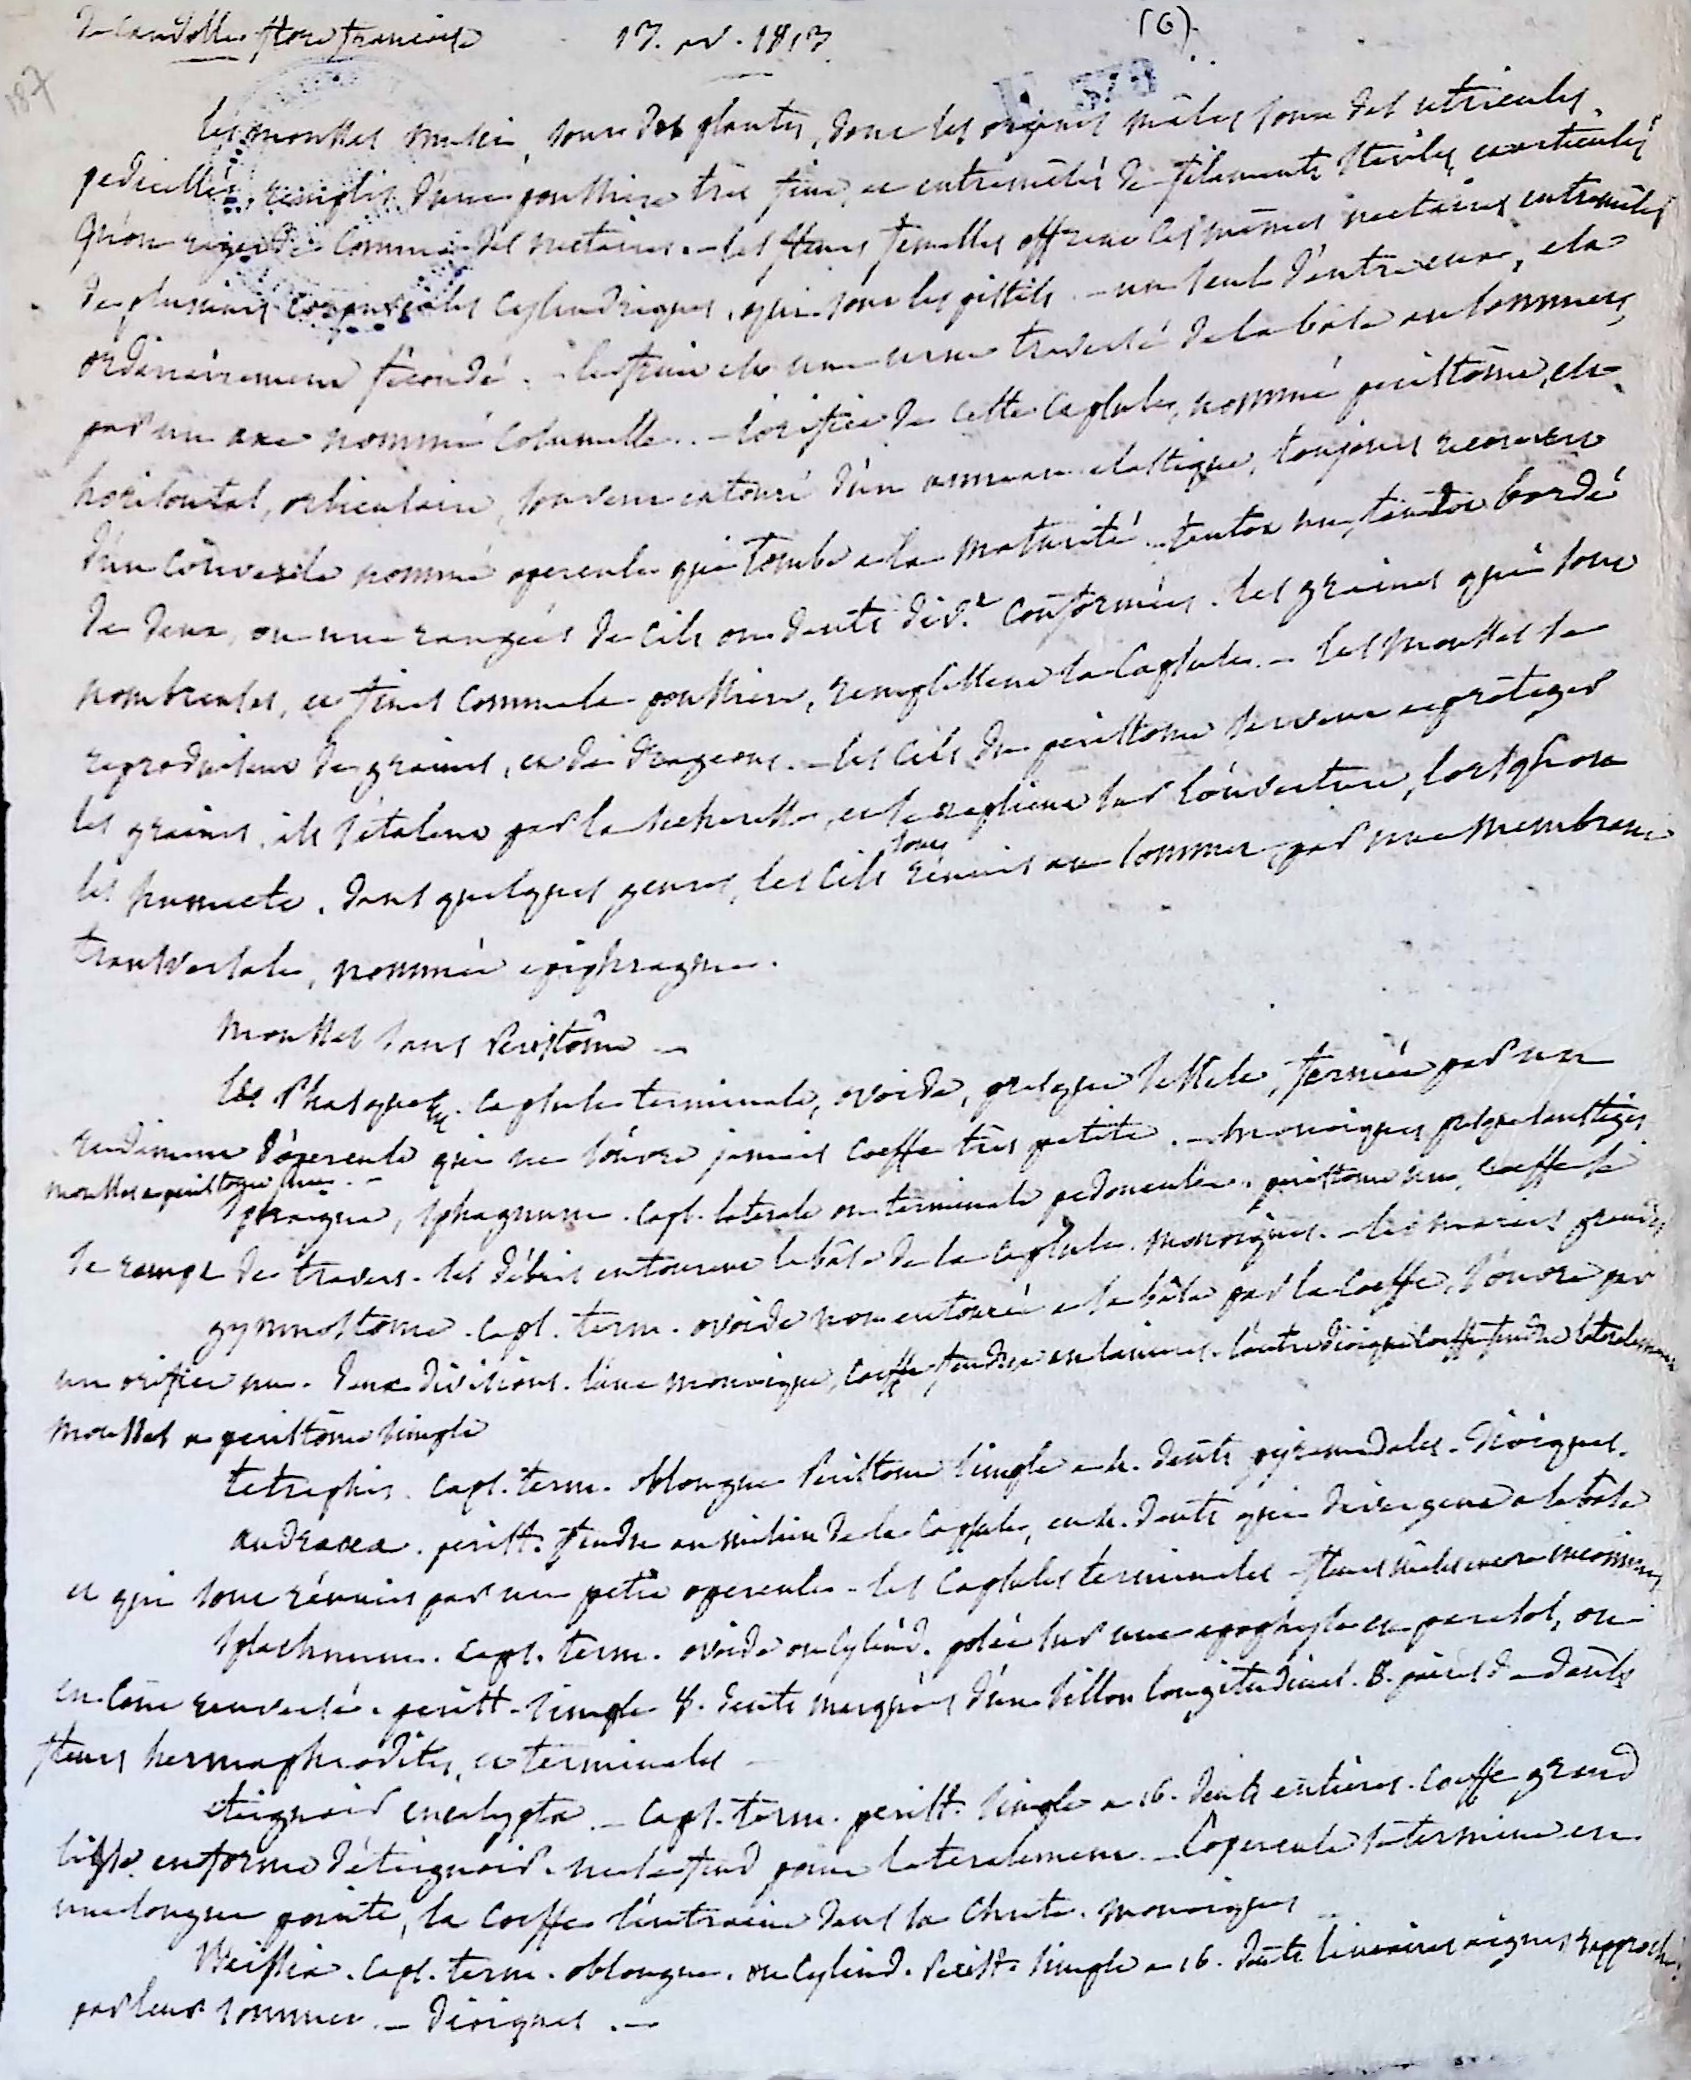 De Candolle flore française 17. av. 1813. (6)
187
V. 373
les mousses musci, sont des plantes, dont les organes mâles sont des utricules.
pedicellés remplis d'une poussiere très fine, et entremêlés de filaments steriles, articulés
qu'on regarde comme des nectaires. - les fleurs femelles offrent ces mêmes nectaires entremêlés
de plusieurs corpuscules cylindriques, qui sont les pistils. - un seul d'entre eux, est
ordinairement fécondé. - le fruit est une urne traversé de la base au sommet,
par un axe nommé columelle. - l'orifice de cette capsule, nommé peristôme, est
horisontal, orbiculaire, souvent entouré d'un anneau elastique, toujours recouvert
d'un couvercle nommé opercule qui tombe a la maturité. tantôt nu, tantôt bordé
de deux, ou une rangées de cils ou dents div.t conformées. les graines qui sont
nombreuses, et fines comme la poussiere, remplissent la capsule. - les mousses se
reproduisent de graines, et de drageons. - les cils du peristome servent a proteger
les graines. ils s'étalent par la secheresse, et se replient sur l'ouverture, lorsqu'on
les humecte. dans quelques genres, les cils sont réunis au sommet par une membrane
transversale, nommée epiphragme.
mousses sans Peristôme -
les Phasques. capsule terminale, ovoide, presque sessile, fermée par un
rudiment d'opercule qui ne s'ouvre jamais coeffe très petite. - monoiques presque sans tiges
mousses a peristome nu. -
sphaigne, sphagnum. caps. laterale ou terminale pedonculée. peristome nu, coeffe se
se rompt de travers. les débris entourent la base de la capsule. monoiques. - les marais
gymnostome. caps. term. ovoide non entourée a la base par la coeffe, s'ouvre par
un orifice nu. deux divisions. l'une monoique, coeffe fendue en lanieres. l'autre dioique coeffe fendue lateralement
mousses a peristôme simple
tetraphis. caps. term. oblongue Peristome simple a 4. dents pyramidales. dioiques.
andraea. perist. fendu au milieu de la capsule, en 4. dents qui divergent a la base
et qui sont réunies par un petit opercule. les capsules terminales - fleurs mâles encore inconnues
splachnum. caps. term. ovoide ou cylind. posée sur une apophyse en parasol, ou
en cône renversé. perist. simple 8. dents marquées d'un sillon longitudinal. 8. paires de dents
fleurs hermaphrodites, et terminales -
éteignoir encalypta. - caps. term. perist. simple a 16. dents entieres. coeffe grand
lisse en forme d'éteignoir. ne se fend point lateralement. - l'opercule se termine en
une longue pointe, la coeffe l'entraine dans sa chute. monoiques
Weissia. caps. term. oblongue. ou cylind. Perist. simple a 16. dents lineaires aigues rapprochées
par leur sommet. - dioiques. -